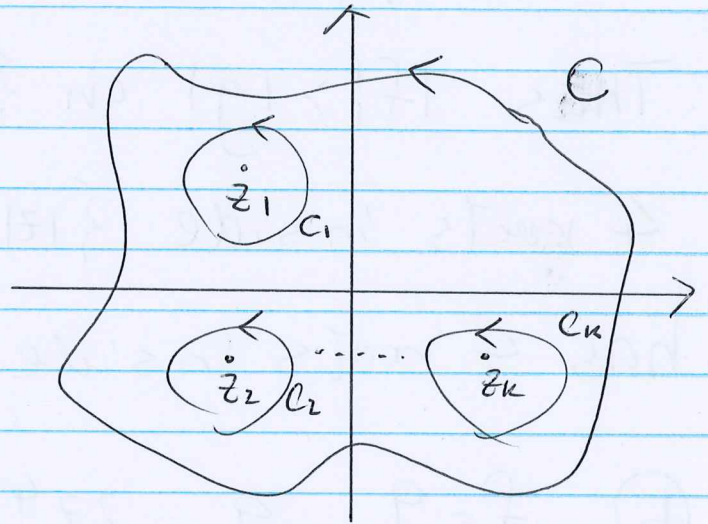 C
z₁
C₁
Cₖ
z₂ C₂ ...... zₖ